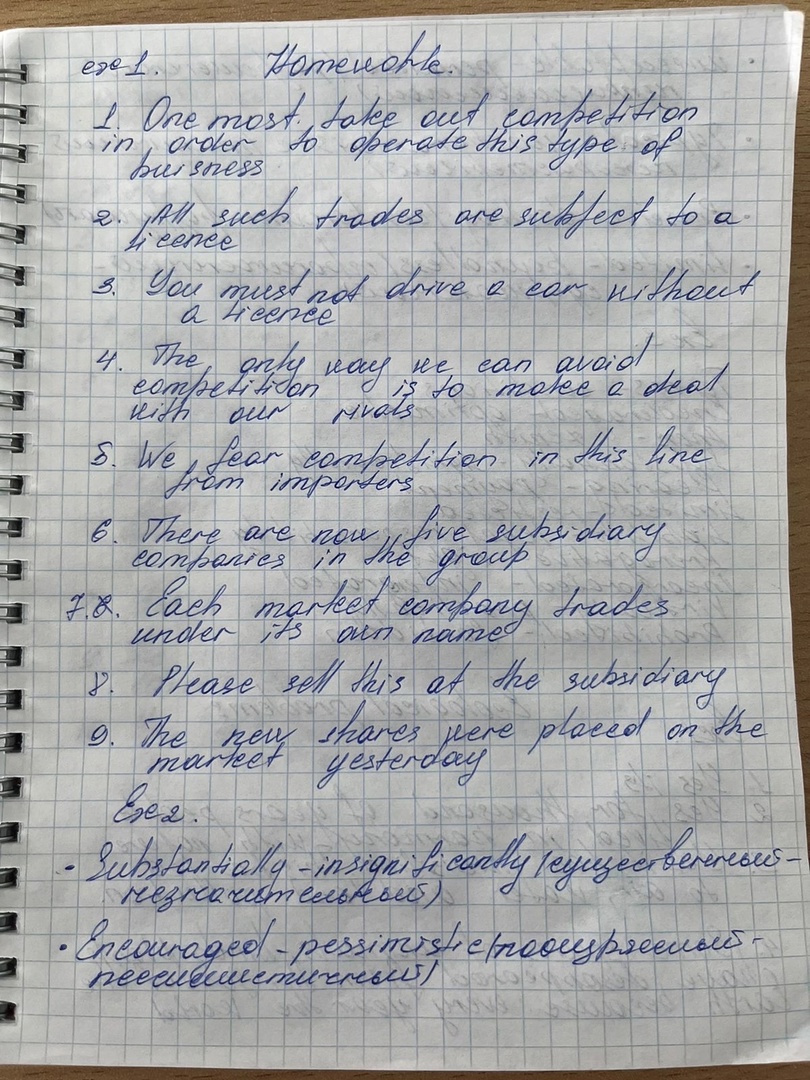 exe 1. Homework.
1. One most take out competition
in order to operate this type of
buisness
2. All such trades are subject to a
licence
3. You must not drive a car without
a licence
4. The only way we can avoid
competition is to make a deal
with our rivals
5. We fear competition in this line
from importers
6. There are now five subsidiary
companies in the group
7. Each market company trades
under its own name
8. Please sell this at the subsidiary
9. The new shares were placed on the
market yesterday
Exe 2.
• Substantially - insignificantly (существенный -
незначительный)
• Encouraged - pessimistic (поощряемый -
пессимистичный)